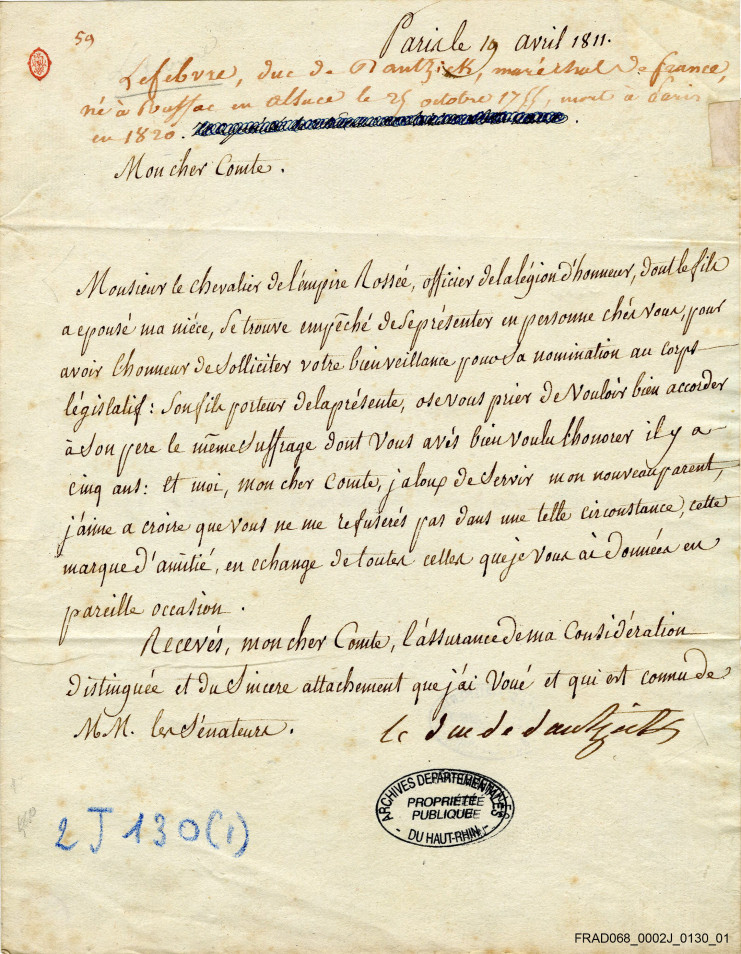 59
Paris le 19 avril 1811.
Lefebvre, duc de Dantzick, maréchal de france,
né à Ruffac en alsace le 25 octobre 1755, mort à Paris
en 1820.
Mon cher Comte.
Monsieur le chevalier de l'émpire Rossée, officier de la légion d'honneur, dont le fils
a epousé ma niéce, se trouve empêché de se présenter en personne chés vous, pour
avoir l'honneur de solliciter votre bienveillance pour sa nomination au corps
législatif: son fils porteur de la présente, ose vous prier de vouloir bien accorder
à son pere le même suffrage dont vous avés bien voulu l'honorer il y a
cinq ans: et moi, mon cher Comte, jaloux de servir mon nouveau parent,
j'aime a croire que vous ne me refuserés pas dans une telle circonstance, cette
marque d'amitié, en echange de toutes celles que je vous ai données en
pareille occasion.
Recevés, mon cher Comte, l'assurance de ma Considération
distinguée et du sincere attachement que j'ai voué et qui est connu de
MM. les sénateurs.
le duc de dantzick
ARCHIVES DEPARTEMENTALES
PROPRIÉTÉE
PUBLIQUE
- DU HAUT-RHIN -
2 J 130(1)
FRAD068_0002J_0130_01